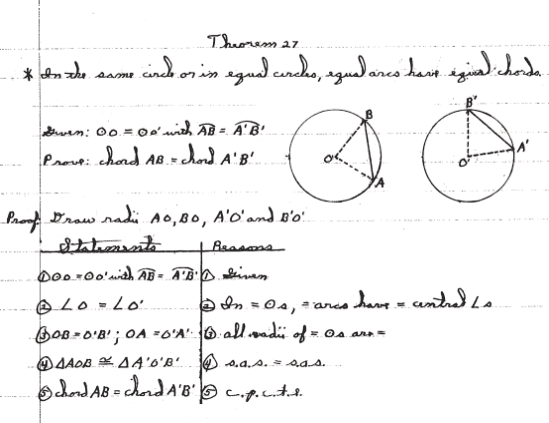 Theorem 27
* In the same circle or in equal circles, equal arcs have equal chords.
Given: ⊙O = ⊙O' with AB = A'B'
Prove: chord AB = chord A'B'
B
O
A
B'
O'
A'
Proof: Draw radii AO, BO, A'O' and B'O'
Statements Reasons
① ⊙O = ⊙O' with AB = A'B' ① Given
② ∠O = ∠O' ② In = ⊙s, = arcs have = central ∠s
③ OB = O'B' ; OA = O'A' ③ all radii of = ⊙s are =
④ △AOB ≅ △A'O'B' ④ s.a.s. = s.a.s.
⑤ chord AB = chord A'B' ⑤ c.p.c.t.e.